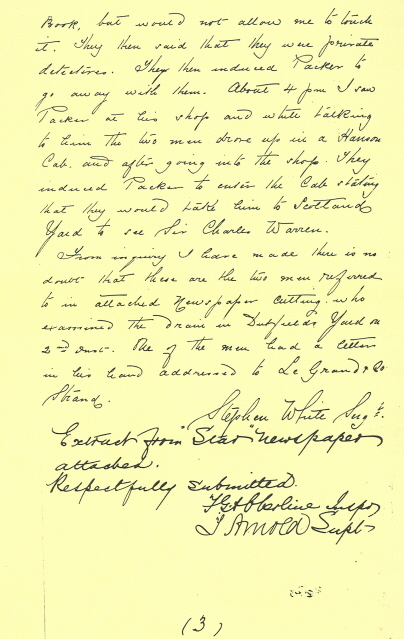 Book, but would not allow me to touch
it. They then said that they were private
detectives. They then induced Packer to
go away with them. About 4 pm I saw
Packer at his shop and while talking
to him the two men drove up in a Hansom
Cab. and after going into the shop. They
induced Packer to enter the Cab stating
that they would take him to Scotland
Yard to see Sir Charles Warren.
From inquiry I have made there is no
doubt that these are the two men referred
to in attached Newspaper Cutting. who
examined the drain in Dutfields Yard on
2nd Inst. One of the men had a letter
in his hand addressed to Le Grand & Co
Strand.
Stephen White Sergt.
Extract from "Star" newspaper
attached.
Respectfully submitted.
F G Abberline Inspr
T Arnold Supt
(3)